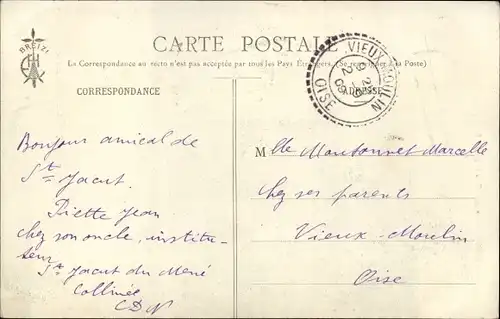 BREIZ
CARTE POSTALE
La Correspondance au recto n'est pas acceptée par tous les Pays Étrangers. (Se renseigner à la Poste)
VIEUX MOULIN
OISE
CORRESPONDANCE
ADRESSE
Bonjour amical de
St Jacut.
Piette Jean
chez son oncle, institu-
teur
St Jacut du Mené
Collinée
CDN
Mlle Moutonnet Marcelle
chez ses parents
Vieux-Moulin
Oise